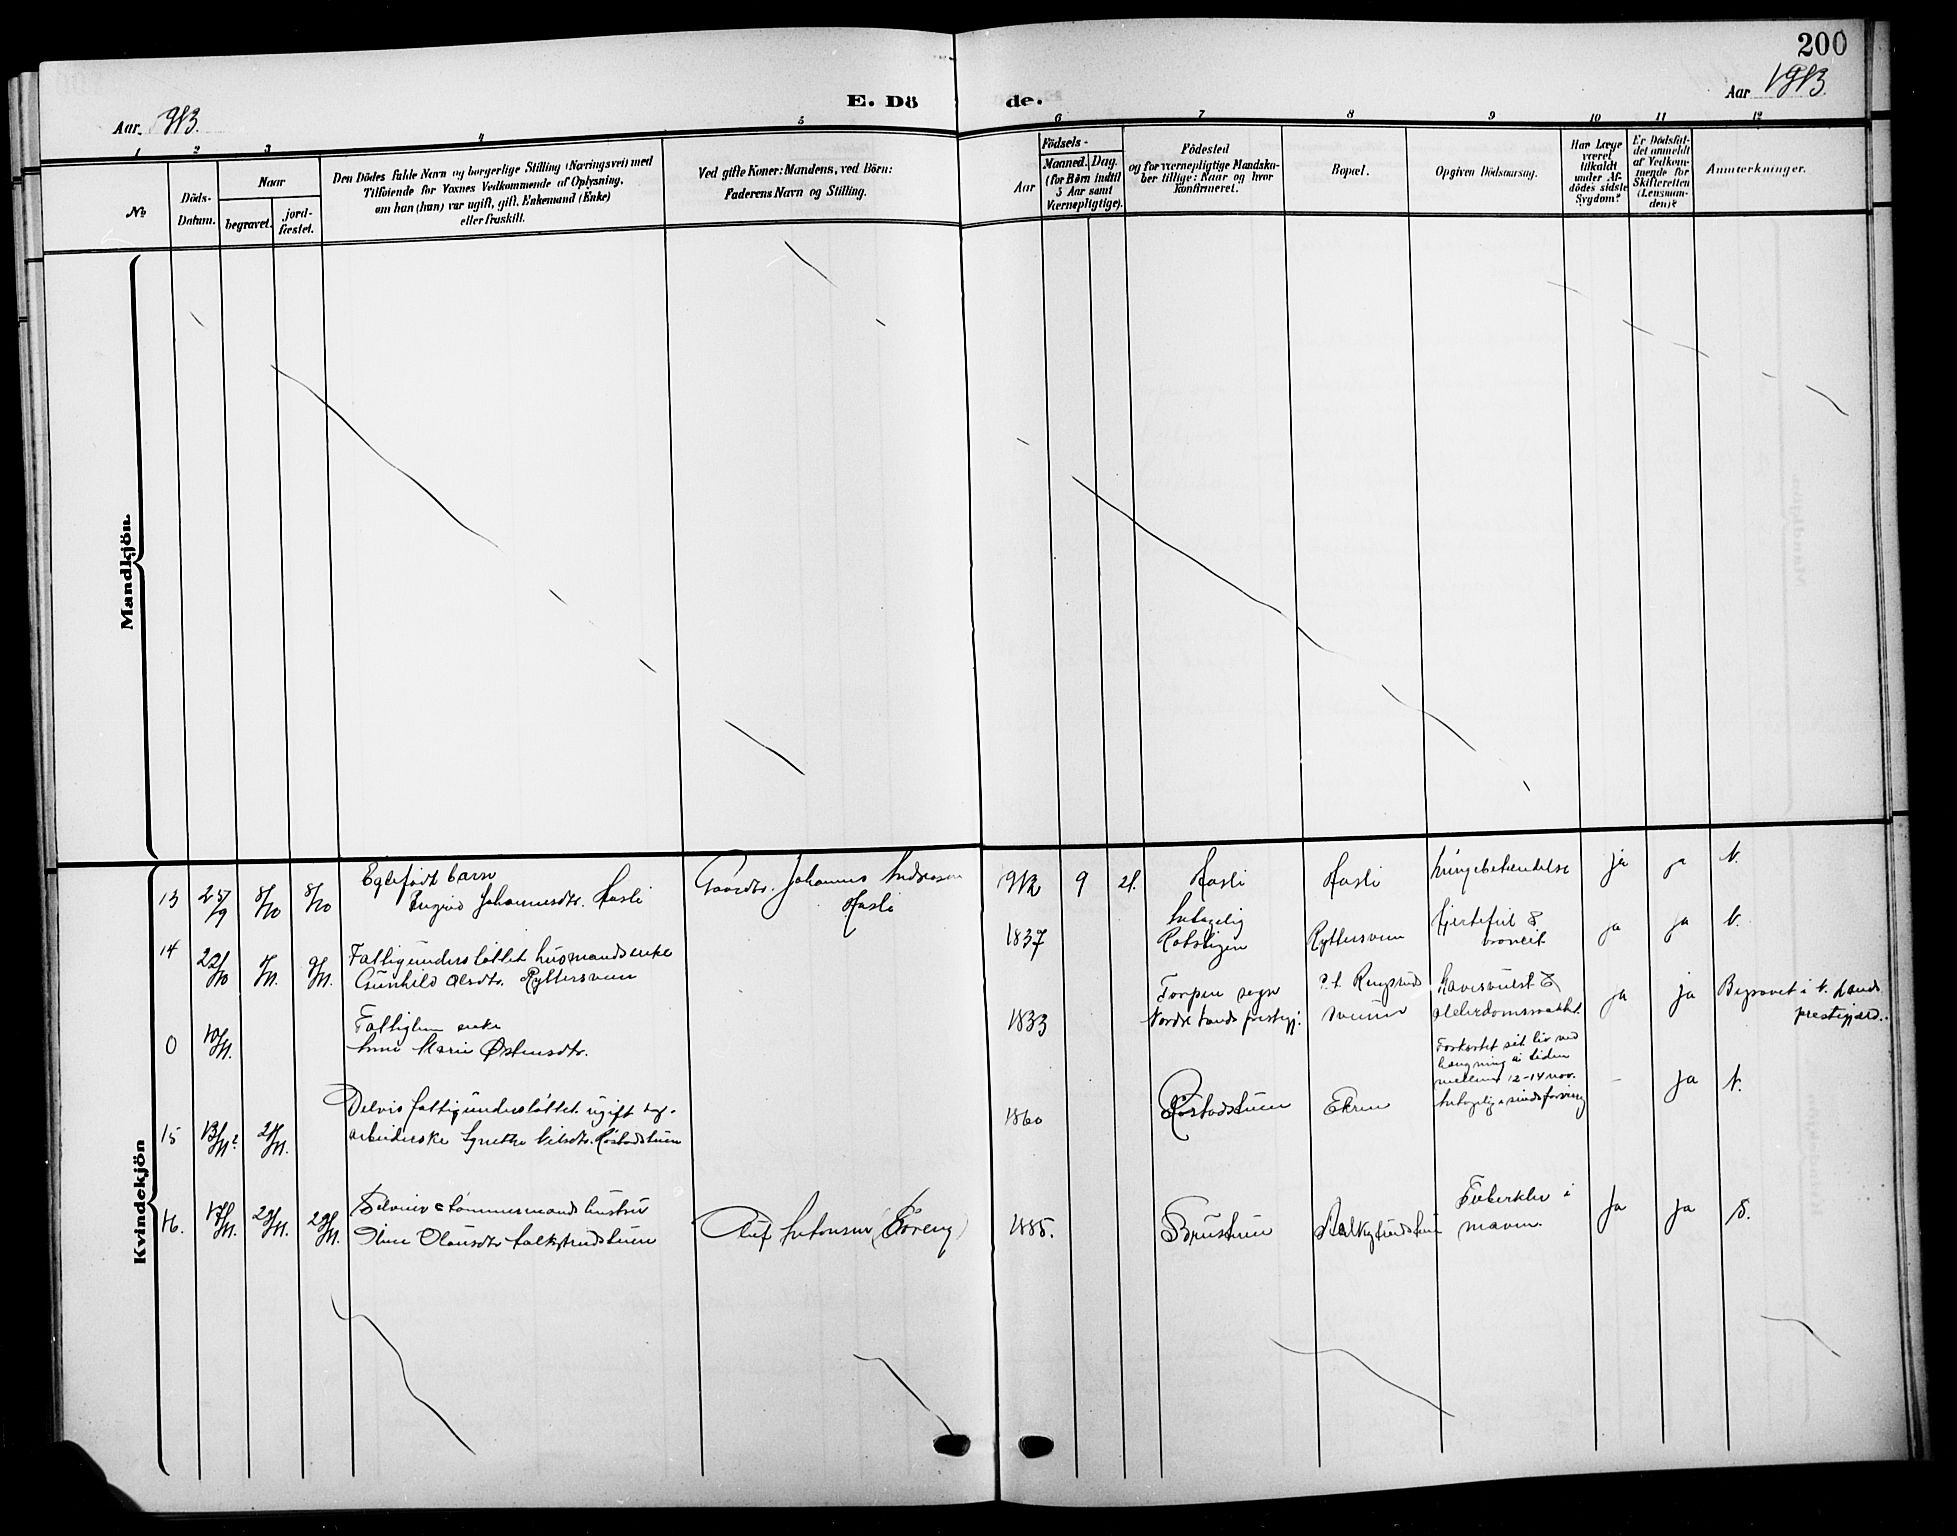 200
Aar 1913.
E. Dö de.
Aar 1913
1 2 3 4 5 6 7 8 9 10 11 12
No
Döds-
Datum.
Naar
begravet.
jord-
fæstet.
Den Dödes fulde Navn og borgerlige Stilling (Næringsvei) med
Tilföiende for Voxnes Vedkommende af Oplysning,
om han (hun) var ugift, gift, Enkemand (Enke)
eller fraskilt.
Ved gifte Koner: Mandens, ved Börn:
Faderens Navn og Stilling.
Födsels-
Aar
Maaned. Dag.
(for Börn indtil
5 Aar samt
Værnepligtige).
Födested
og for værnepligtige Mandska-
ber tillige: Naar og hvor
konfirmeret.
Bopæl.
Opgiven Dödsaarsag.
Har Læge
været
tilkaldt
under Af-
dödes sidste
Sygdom?
Er Dödsfal-
det anmeldt
af Vedkom-
mende for
Skifteretten
(Lensman-
den)?
Anmerkninger.
Mandkjön.
Kvindekjön
13 25/9 8/10 8/10
Egtefødt barn
Ingrid Johannesdtr. Hasli
Gaardbr. Johannes Andersen
Hasli
1912 9 21.
Hasli
Hasli
lungebetændelse
ja
ja
N.
14 22/10 8/11. 9/11.
Fattigunderstøttet husmandsenke
Gunhild Olsdtr. Ryttersveen
1837
Ryttersveen
Hjertefeil &
ja
ja
N.
0 10/11.
Fattiglem enke
Anne Marie Østensdtr.
1833
Torpen sogn
Nordre Lands prestegj.
Mavesvulst &
alderdomssvakhet
ja
ja
Begravet i N. Lands
prestegjeld.
15 13/11? 21/11.
Delvis fattigunderstøttet ugift dag-
arbeiderske Agnethe Nilsdtr. Røstadstuen
1860
Røstadstuen
Ekren
Forkortet sit liv ved
hængning i tiden
mellem 12-14 nov.
antagelig i sindsforvirring
-
ja
N.
16. 17/11. 23/11. 23/11.
tømmermandshustru
Olaf Antonsen (Eoreng)
1885.
Brustuen
Tuberkler i
maven.
ja
ja
S.